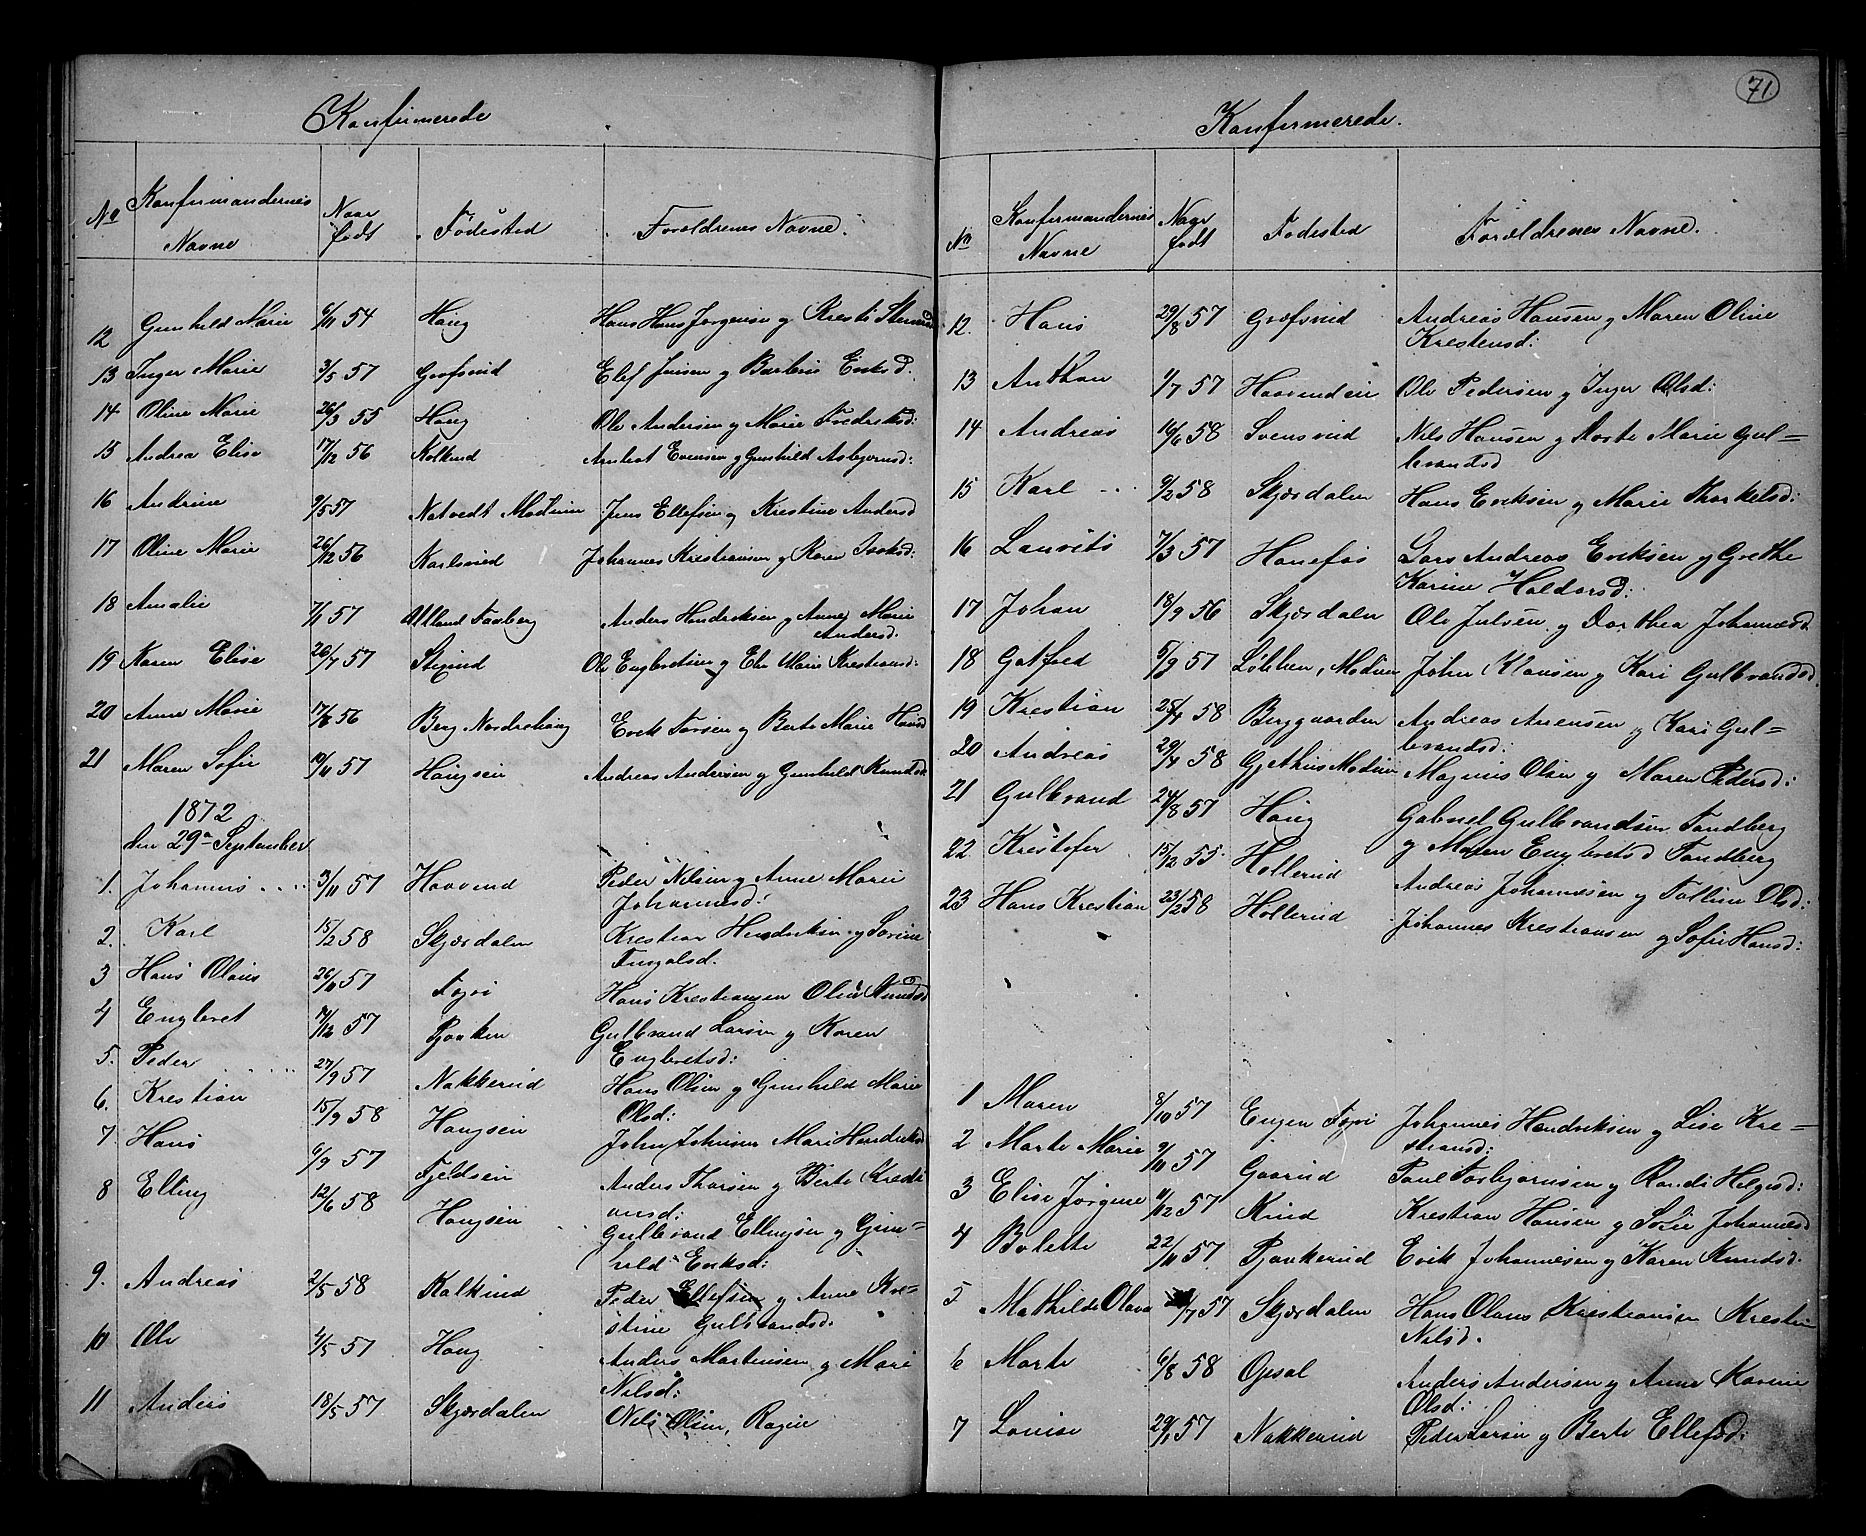 Konfirmerede
No Konfirmandernes Navne Naar født Fødested Forældrenes Navne.
12 Gunhild Marie 6/11 54 Haug Hans Hans Jørgensen og Kresti
13 Inger Marie 3/5 57 Grøfsrud Elef Jensen og Barbro Eriksd.
14 Oline Marie 26/3 55 Haug Ole Andersen og Marie Fredriksd:
15 Andrea Elise 17/12 56 Kolkind Evensen og Gunhild Asbjørnsd:
16 Andrine 9/5 57 Natvedt Modum Jens Ellefsen og Krestine Andersd
17 Oline Marie 26/12 56 Karlsrud Johannes Krestiansen og Karen
18 Amalie 7/1 57 Ulland Faaberg Anders Hendriksen og Anne Marie
Andersd.
19 Karen Elise 26/7 57 Ole Engbretsen og Marie Krestiansd:
20 Anne Marie 17/8 56 Berg Norderhoug Erik Larsen og Berte Marie Hansd
21 Maren Sofie 10/11 57 Haugsen Andreas Andersen og Gunhild Knudsd
1872
den 29de September
1. Johannes 3/11 57 Haavrud Peder Nilsen og Anne Marie
Johannesd:
2. Karl 15/2 58 Skjærdalen Krestian Hendriksen og Sørine
3 Hans Olaus 26/10 57 Togri Hans Krestiansen Olia Knudsd
4 Engbret 7/12 57 Pjaaken Gulbrand Larsen og Karen
Engbretsd:
5. Peder 27/9 57 Nakkerud Hans Olsen og Gunhild Marie
Olsd:
6. Krestian 15/9 58 Haugsen John Johnsen Mari Hendriksd
7 Hans 6/9 57 Fjeldsen Anders Thorsen og Berte Kresti
ansd:
8 Elling 12/6 58 Haugsen Gulbrand Ellingsen og Gun=
hild Eriksd:
9. Andreas 2/5 58 Kalkind Peder Ellefsen og Anne Kre=
stine Gulbrandsd:
10 Ole 4/5 57 Haug Anders Martinsen og Mari
Nilsd:
11 Anders 18/5 57 Skjærdalen Nils Olsen, Ragne
71
Konfirmerede.
No Konfirmandernes Navne Naar født Fødested Forældrenes Navne.
12. Hans 29/8 57 Grøfsrud Andreas Hansen og Maren Oline
Krestensd:
13 Anthon 1/7 57 Haavendsen Ole Pedersen og Inger Olsd:
14 Andreas 10/6 58 Svensrud Nils Hansen og Dorte Marie Gul=
brandsd
15 Karl 9/2 58 Skjærdalen Hans Eriksen og Marie Thorkelsd:
16 Laurits 7/3 57 Hønefos Lars Andreas Eriksen og Grethe
Karine Haldorsd:
17 Johan 18/9 56 Skjærdalen Ole Julsen og Dorthea Johannesd.
18 Gotfred 5/9 57 Løbben, Modum John Klausen og Kari Gulbrandsd.
19 Krestian 28/4 58 Berggaarden Andreas Arensen og Kari Gul=
brandsd:
20 Andreas 29/4 58 Gjethus Modum Magnus Olsen og Maren Pedersd:
21 Gulbrand 24/8 57 Haug Gabriel Gulbrandsen Tandberg
og Maren Engbretsd Tandberg
22 Kristofer 15/12 55 Hollerud Andreas Johannesen og Olsd:
23 Hans Krestian 23/2 58 Hollerud Johannes Krestiansen og Sofie Hansd:
1 Maren 8/10 57 Engen Togri Johannes Hendriksen og Lise Kre=
stiansd:
2 Marte Marie 9/11 57 Gaarud Paul Torbjørnsen og Randi Helgesd:
3 Elise Jørgine 11/12 57 Krestian Hansen og Sofie Johannesd
4 Bolette 22/11 57 Pjaakerud Erik Johannesen og Karen Knudsd.
5 Mathilde Olava /7 57 Skjærdalen Hans Olaus Krestiansen Krestine
Nilsd.
6 Marte 6/8 58 Opsal Anders Andersen og Anne Karine
Olsd:
7 Louise 29/1 57 Nakkerud Peder Larsen og Berte Ellefsd: